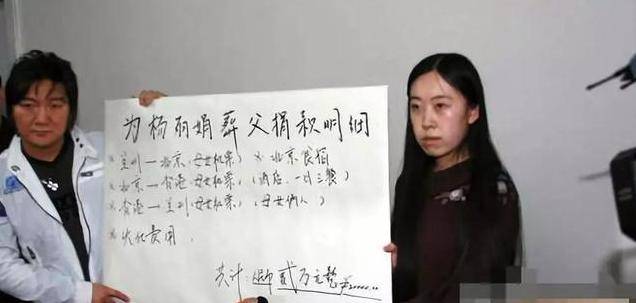 为杨丽娟葬父捐款明细
※兰州—北京(母女机票) ※北京食宿
※北京—香港(母女机票)(酒店、一日三餐)
※香港—兰州(母女机票)(母女俩人)
※火化费用
共计 人民币 贰万元整